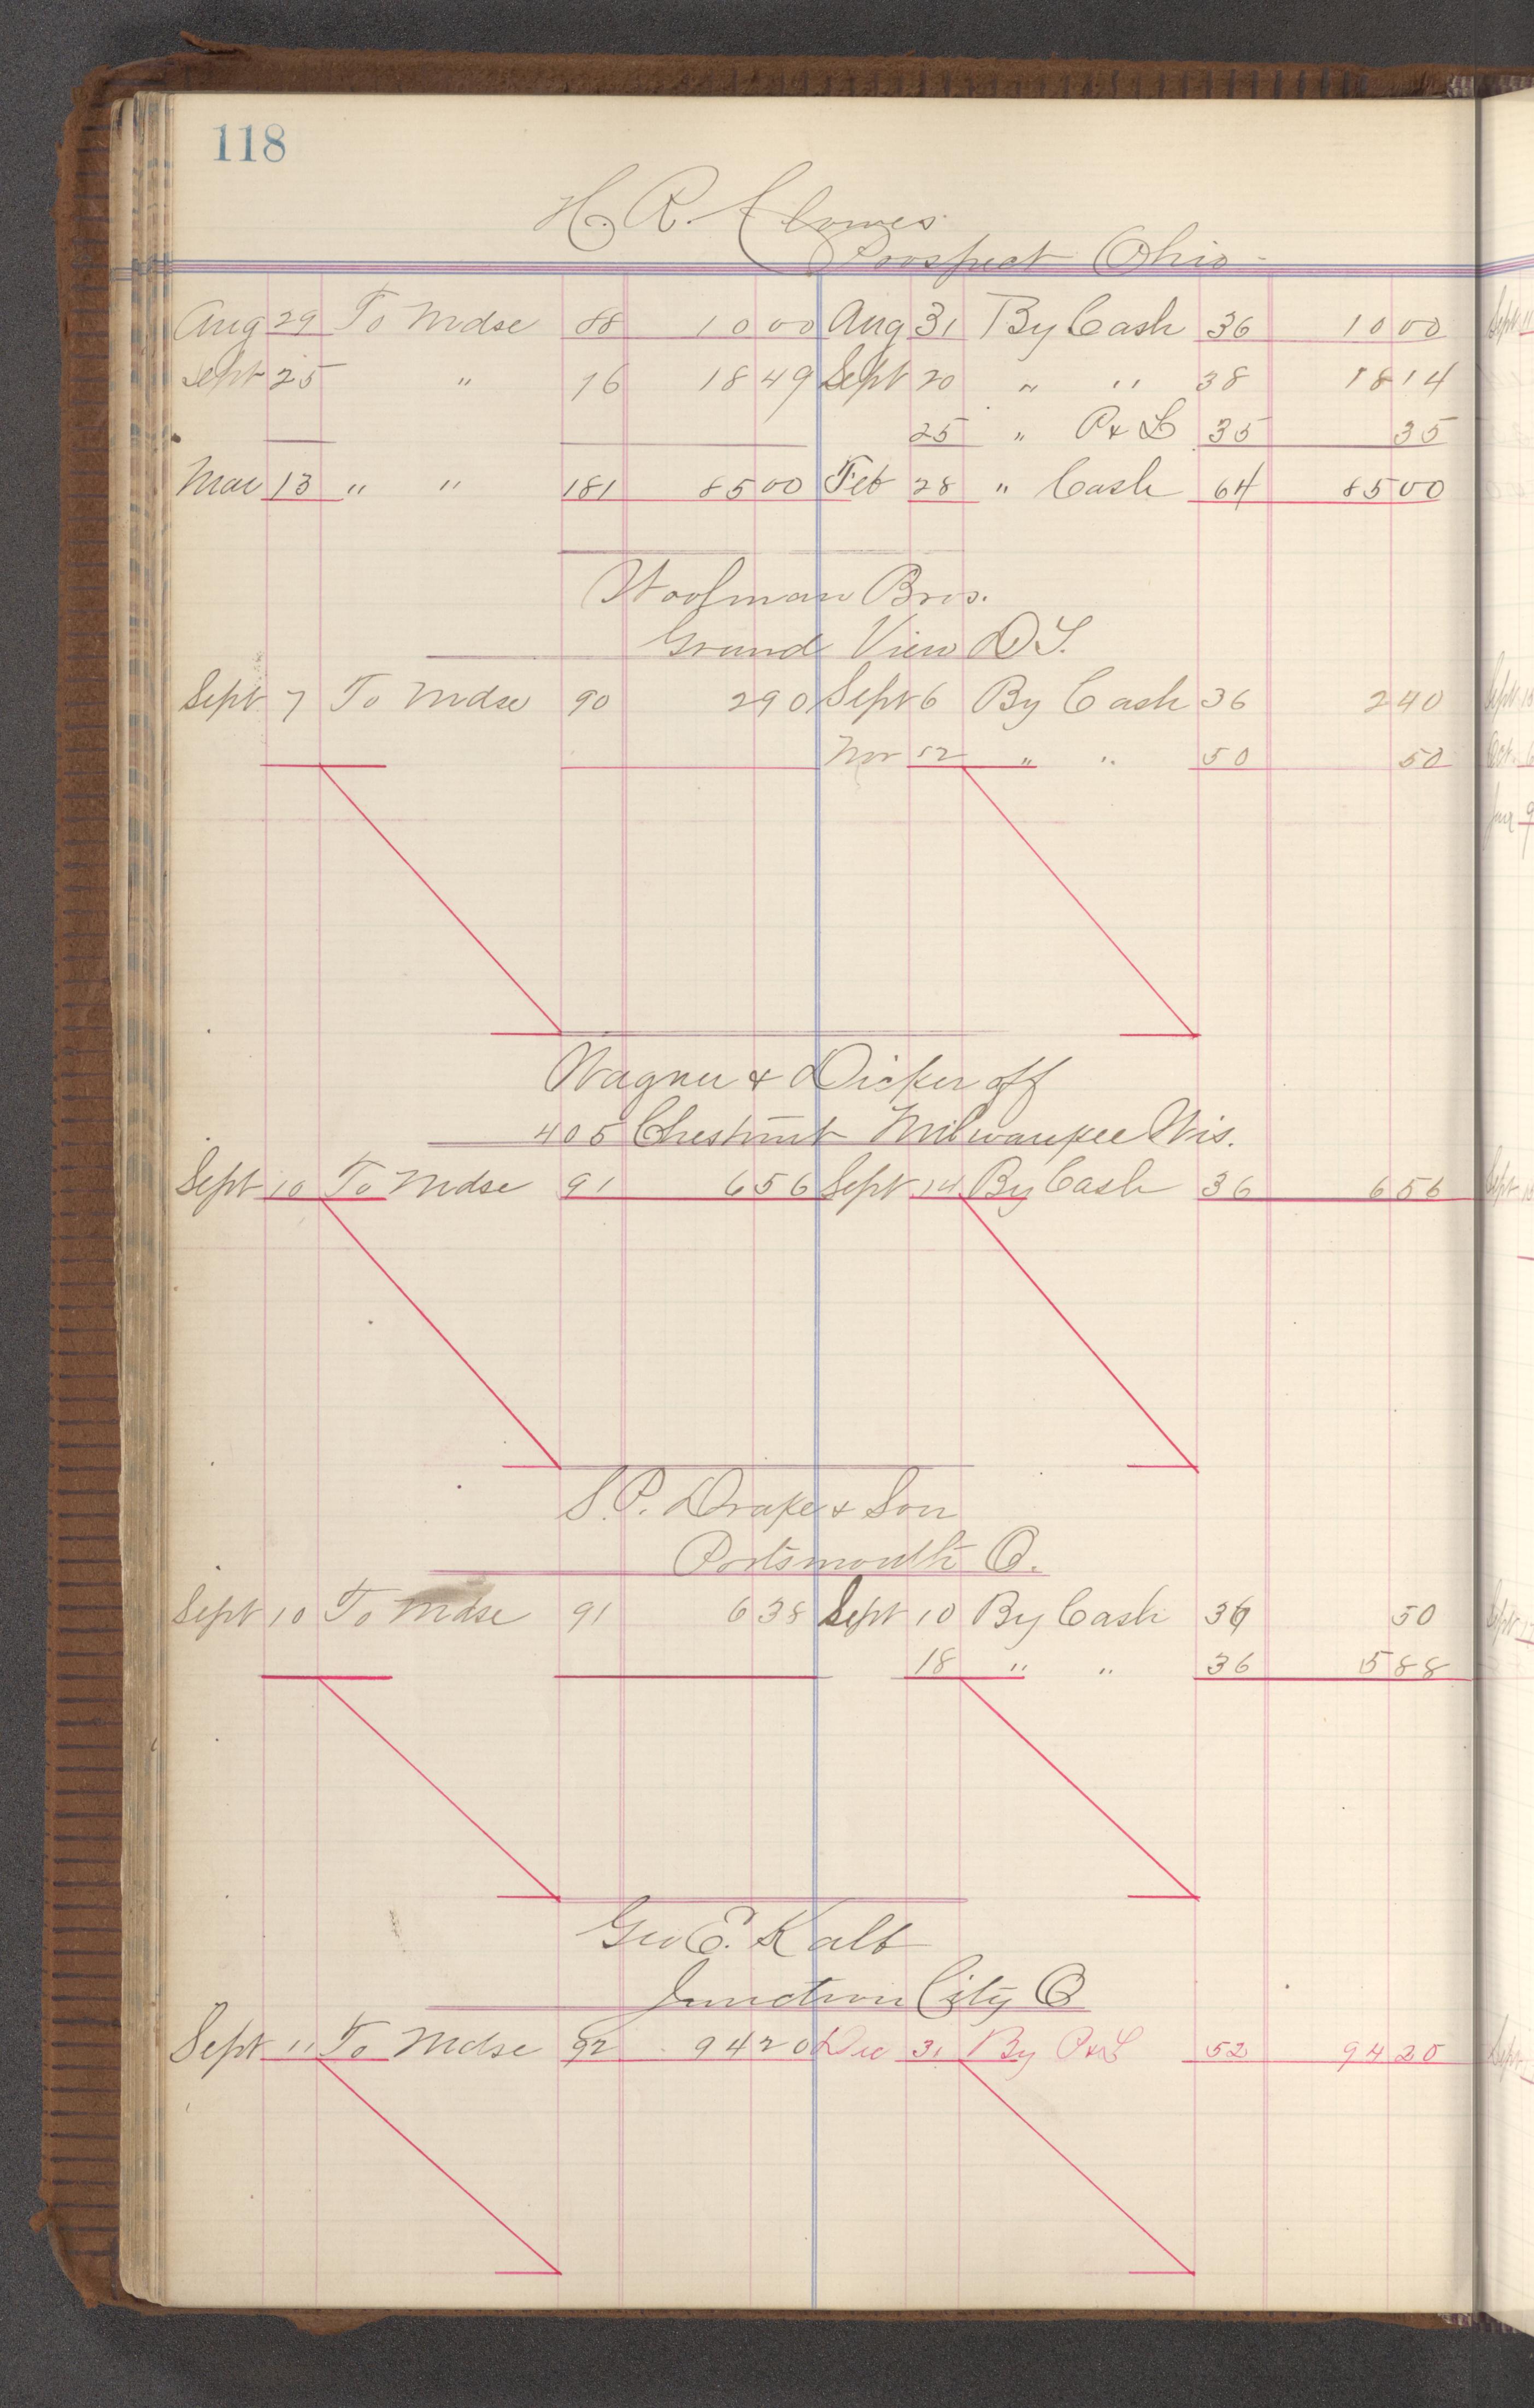 118
H. R. Clowes
Prospect Ohio
Aug 29 To Mdse 88 10 00 Aug 31 By Cash 36 10 00
Sept 25 " 76 18 49 Sept 20 " " 38 18 14
25 " P & L 35 35
Mar 13 " " 181 85 00 Feb 28 " Cash 64 85 00
Woolman Bros.
Grand View D T.
Sept 7 To Mdse 90 2 90 Sept 6 By Cash 36 2 40
Nov 12 " " 50 50
Wagner & Dickeroff
405 Chestnut Milwaukee Wis.
Sept 10 To Mdse 91 6 56 Sept 14 By Cash 36 6 56
S. P. Drake & Son
Portsmouth O.
Sept 10 To Mdse 91 6 38 Sept 10 By Cash 36 50
18 " " 36 5 88
Geo E. Kalb
Junction City O
Sept 11 To Mdse 92 94 20 Dec 31 By P & L 52 94 20